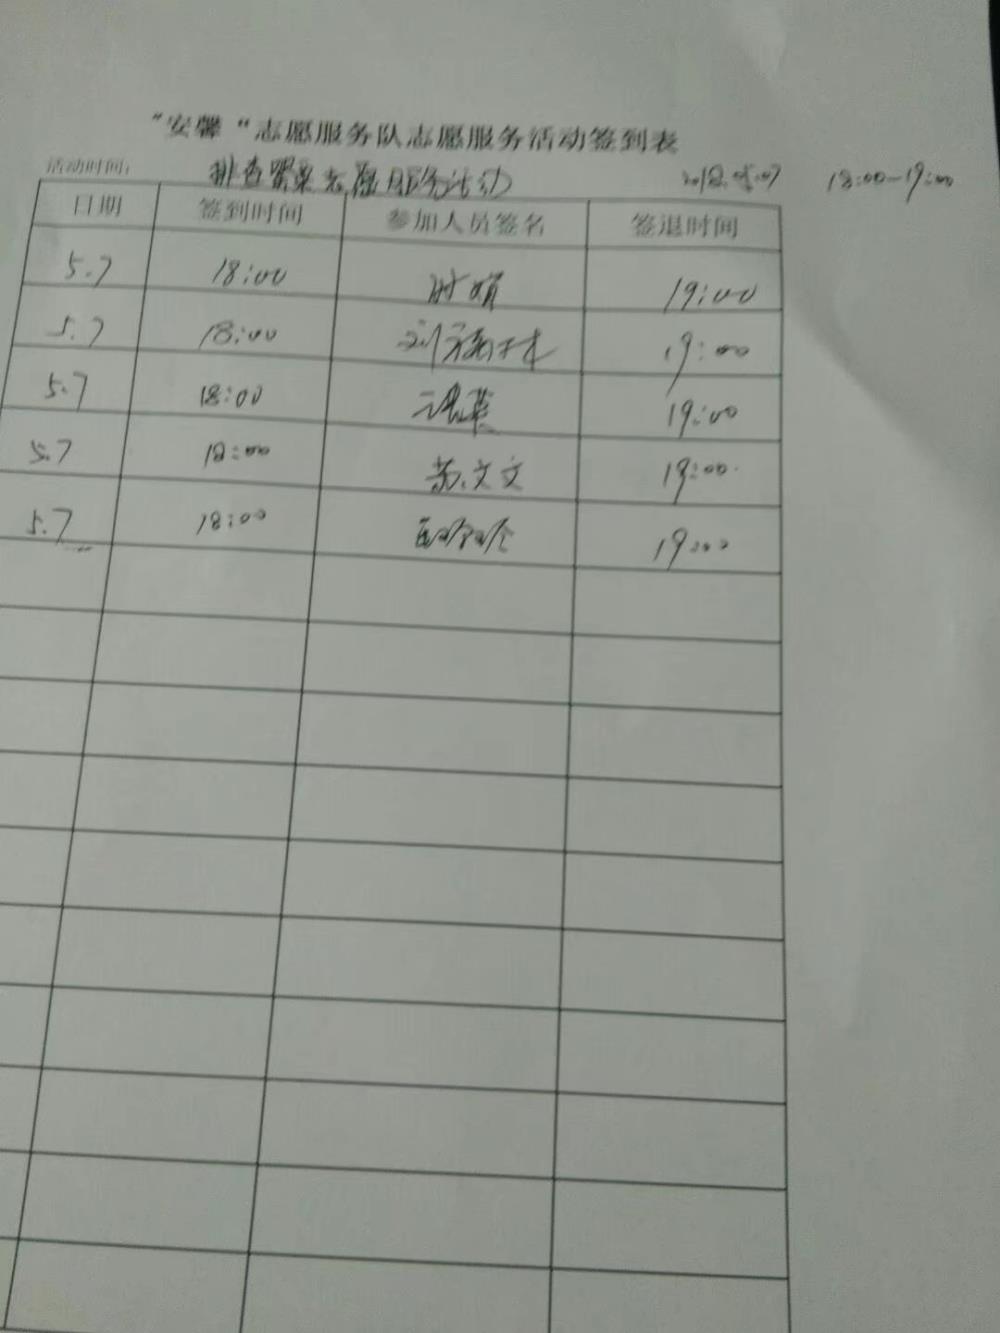 "安馨"志愿服务队志愿服务活动签到表
活动时间： 排查 志愿服务活动 2018.05.07 18:00-19:00
日期 签到时间 参加人员签名 签退时间
5.7 18:00 时娟 19:00
5.7 18:00 19:00
5.7 18:00 19:00
5.7 18:00 苏文文 19:00
5.7 18:00 19:00